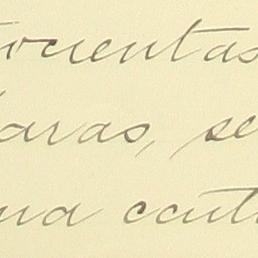 ocientas
aras, se
ua cent